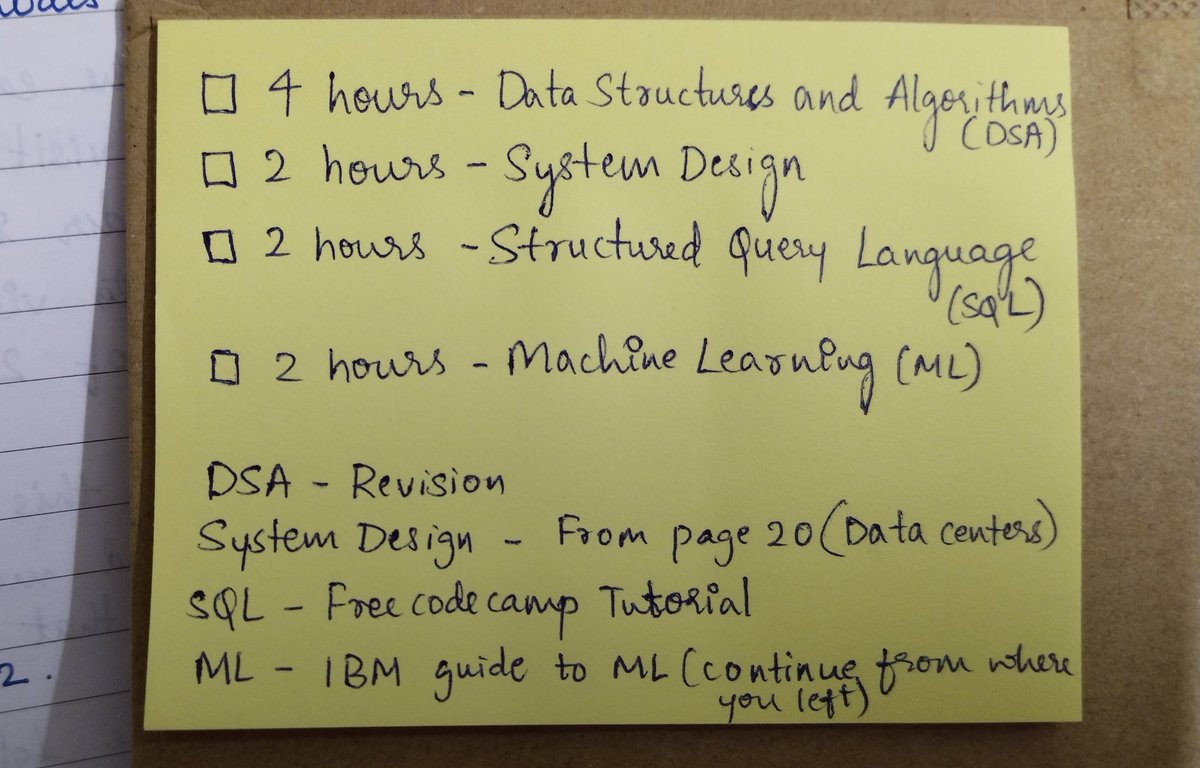 4 hours - Data Structures and Algorithms
(DSA)
2 hours - System Design
2 hours - Structured Query Language
(SQL)
2 hours - Machine Learning (ML)
DSA - Revision
System Design - From page 20 (Data centers)
SQL - Freecodecamp Tutorial
ML - IBM guide to ML (continue from where
you left)
2.